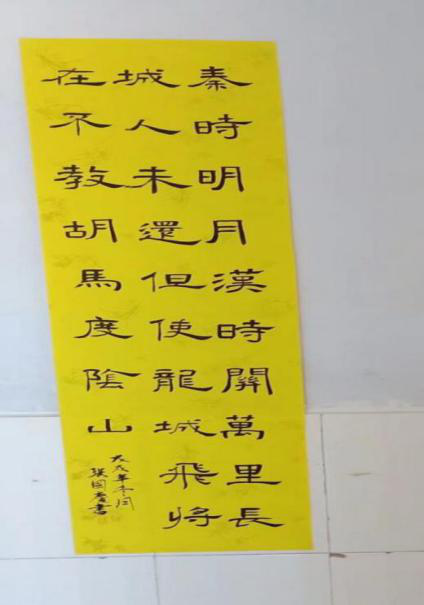 秦時明月漢時關萬里長
城人未還但使龍城飛將
在不教胡馬度陰山
戊戌年冬月